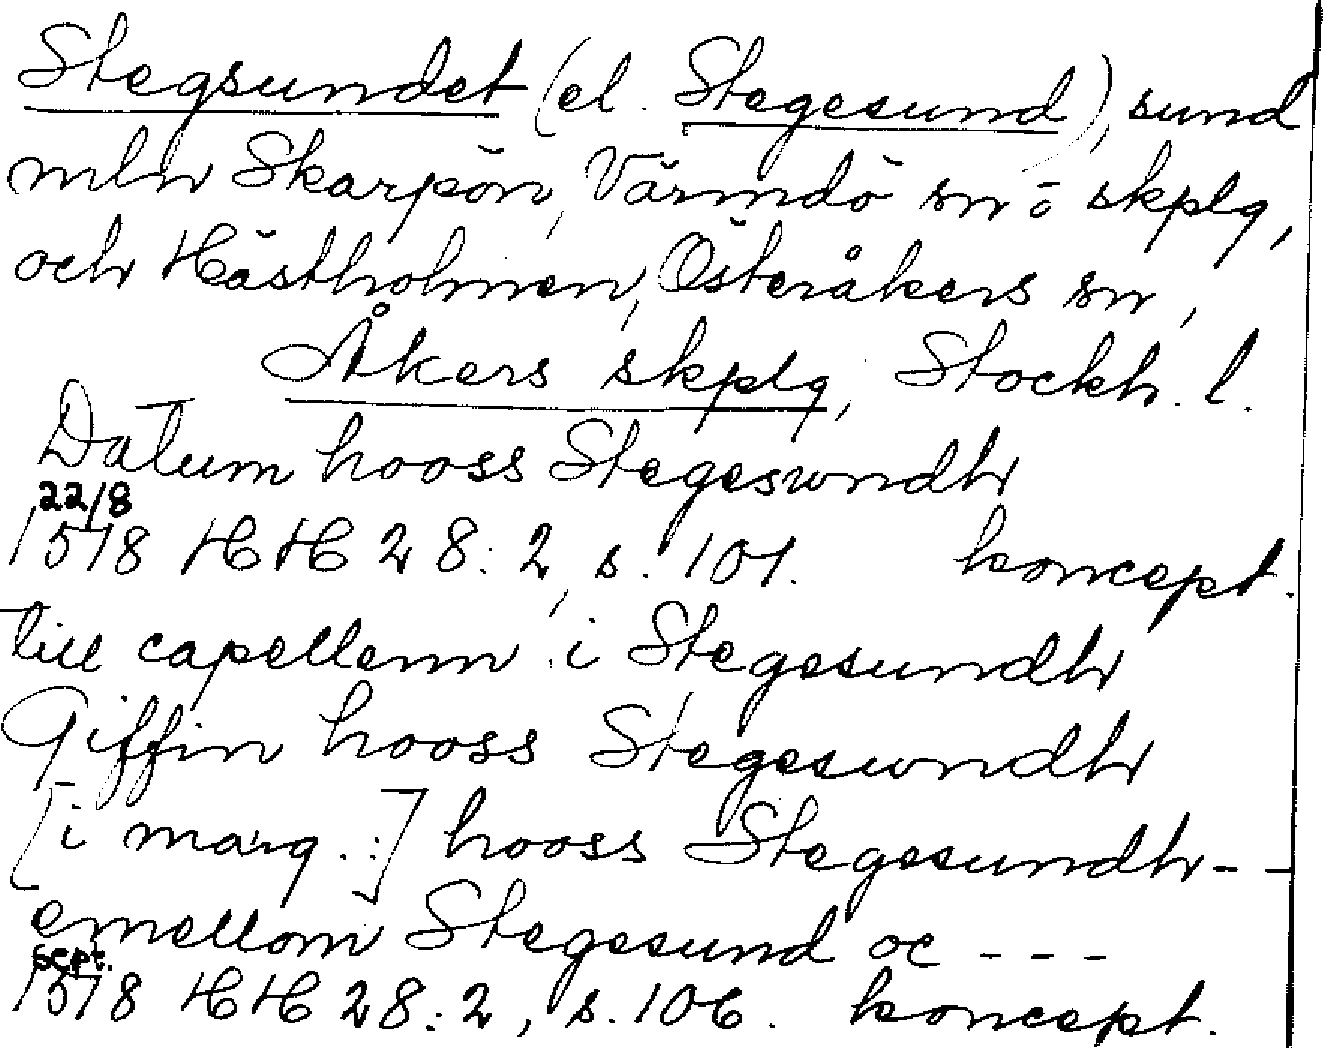 Stegsundet (el. Stegesund), sund
mln Skarpön, Värmdö sn o skplg,
och Hästholmen, Österåkers sn,
Åkers skplg, Stockh. l.
Datum hooss Stegeswndh
22/8
1578 HH 28:2, s. 101. koncept.
till capellenn i Stegesundh
Giffin hooss Stegeswndh
[i marg.:] hooss Stegesundh--
emellom Stegesund oc ---
sept.
1578 HH 28:2, s. 106. koncept.